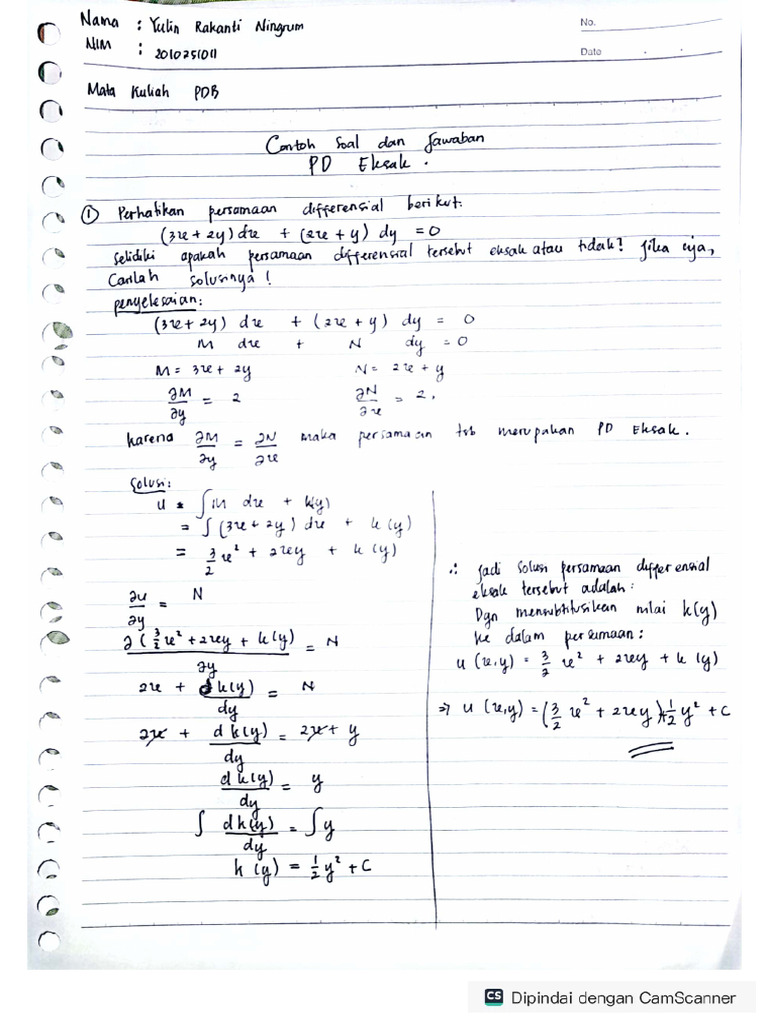 Nama : Yulin Rakanti Ningrum
No.
NIM : 2010251011
Date
Mata Kuliah PDB
Contoh Soal dan Jawaban
PD Eksak.
① Perhatikan persamaan differensial berikut:
(3x + 2y) dx + (2x + y) dy = 0
selidiki apakah persamaan differensial tersebut eksak atau tidak? jika iya,
Carilah solusinya!
penyelesaian:
(3x + 2y) dx + (2x + y) dy = 0
M dx + N dy = 0
M = 3x + 2y N = 2x + y
∂M/∂y = 2 ∂N/∂x = 2.
karena ∂M/∂y = ∂N/∂x maka persamaan tsb merupakan PD Eksak.
Solusi:
u = ∫M dx + k(y)
= ∫(3x + 2y) dx + k(y)
= 3/2 x² + 2xy + k(y)
∂u/∂y = N
∂(3/2 x² + 2xy + k(y))/∂y = N
2x + dk(y)/dy = N
2x + dk(y)/dy = 2x + y
dk(y)/dy = y
∫ dk(y)/dy = ∫y
k(y) = 1/2 y² + C
∴ Jadi Solusi persamaan differensial
eksak tersebut adalah:
Dgn mensubtitusikan nilai k(y)
ke dalam persamaan:
u(x,y) = 3/2 x² + 2xy + k(y)
⇒ u(x,y) = (3/2 x² + 2xy) + 1/2 y² + C
CS Dipindai dengan CamScanner